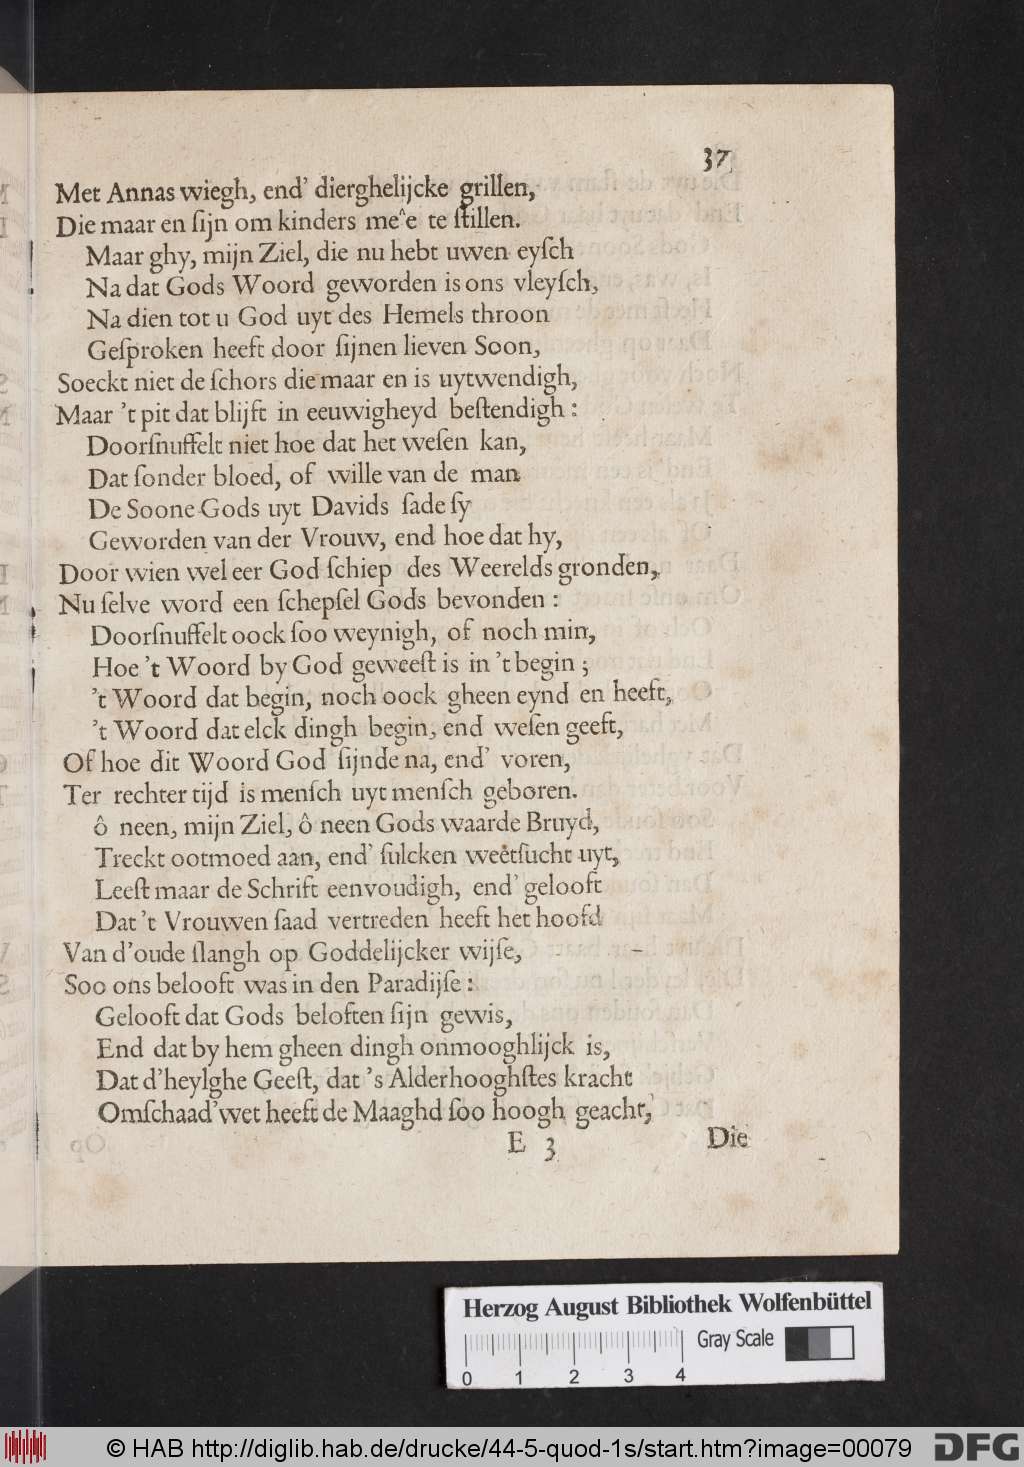 37
Met Annas wiegh, end' dierghelijcke grillen,
Die maar en ſijn om kinders meˆe te ſtillen.
Maar ghy, mijn Ziel, die nu hebt uwen eyſch
Na dat Gods Woord geworden is ons vleyſch,
Na dien tot u God uyt des Hemels throon
Geſproken heeft door ſijnen lieven Soon,
Soeckt niet de ſchors die maar en is uytwendigh,
Maar 't pit dat blijft in eeuwigheyd beſtendigh:
Doorſnuffelt niet hoe dat het weſen kan,
Dat ſonder bloed, of wille van de man
De Soone Gods uyt Davids ſade ſy
Geworden van der Vrouw, end hoe dat hy,
Door wien wel eer God ſchiep des Weerelds gronden,
Nu ſelve word een ſchepſel Gods bevonden:
Doorſnuffelt oock ſoo weynigh, of noch min,
Hoe 't Woord by God geweeſt is in 't begin;
't Woord dat begin, noch oock gheen eynd en heeft,
't Woord dat elck dingh begin, end weſen geeft,
Of hoe dit Woord God ſijnde na, end' voren,
Ter rechter tijd is menſch uyt menſch geboren.
ô neen, mijn Ziel, ô neen Gods waarde Bruyd,
Treckt ootmoed aan, end' ſulcken weêtſucht uyt,
Leeſt maar de Schrift eenvoudigh, end' gelooft
Dat 't Vrouwen ſaad vertreden heeft het hoofd
Van d'oude ſlangh op Goddelijcker wijſe,
Soo ons belooft was in den Paradijſe:
Gelooft dat Gods beloften ſijn gewis,
End dat by hem gheen dingh onmooghlijck is,
Dat d'heylghe Geeſt, dat 's Alderhooghſtes kracht
Omſchaad'wet heeft de Maaghd ſoo hoogh geacht,
E 3 Die
Herzog August Bibliothek Wolfenbüttel
Gray Scale
0 1 2 3 4
© HAB http://diglib.hab.de/drucke/44-5-quod-1s/start.htm?image=00079
DFG